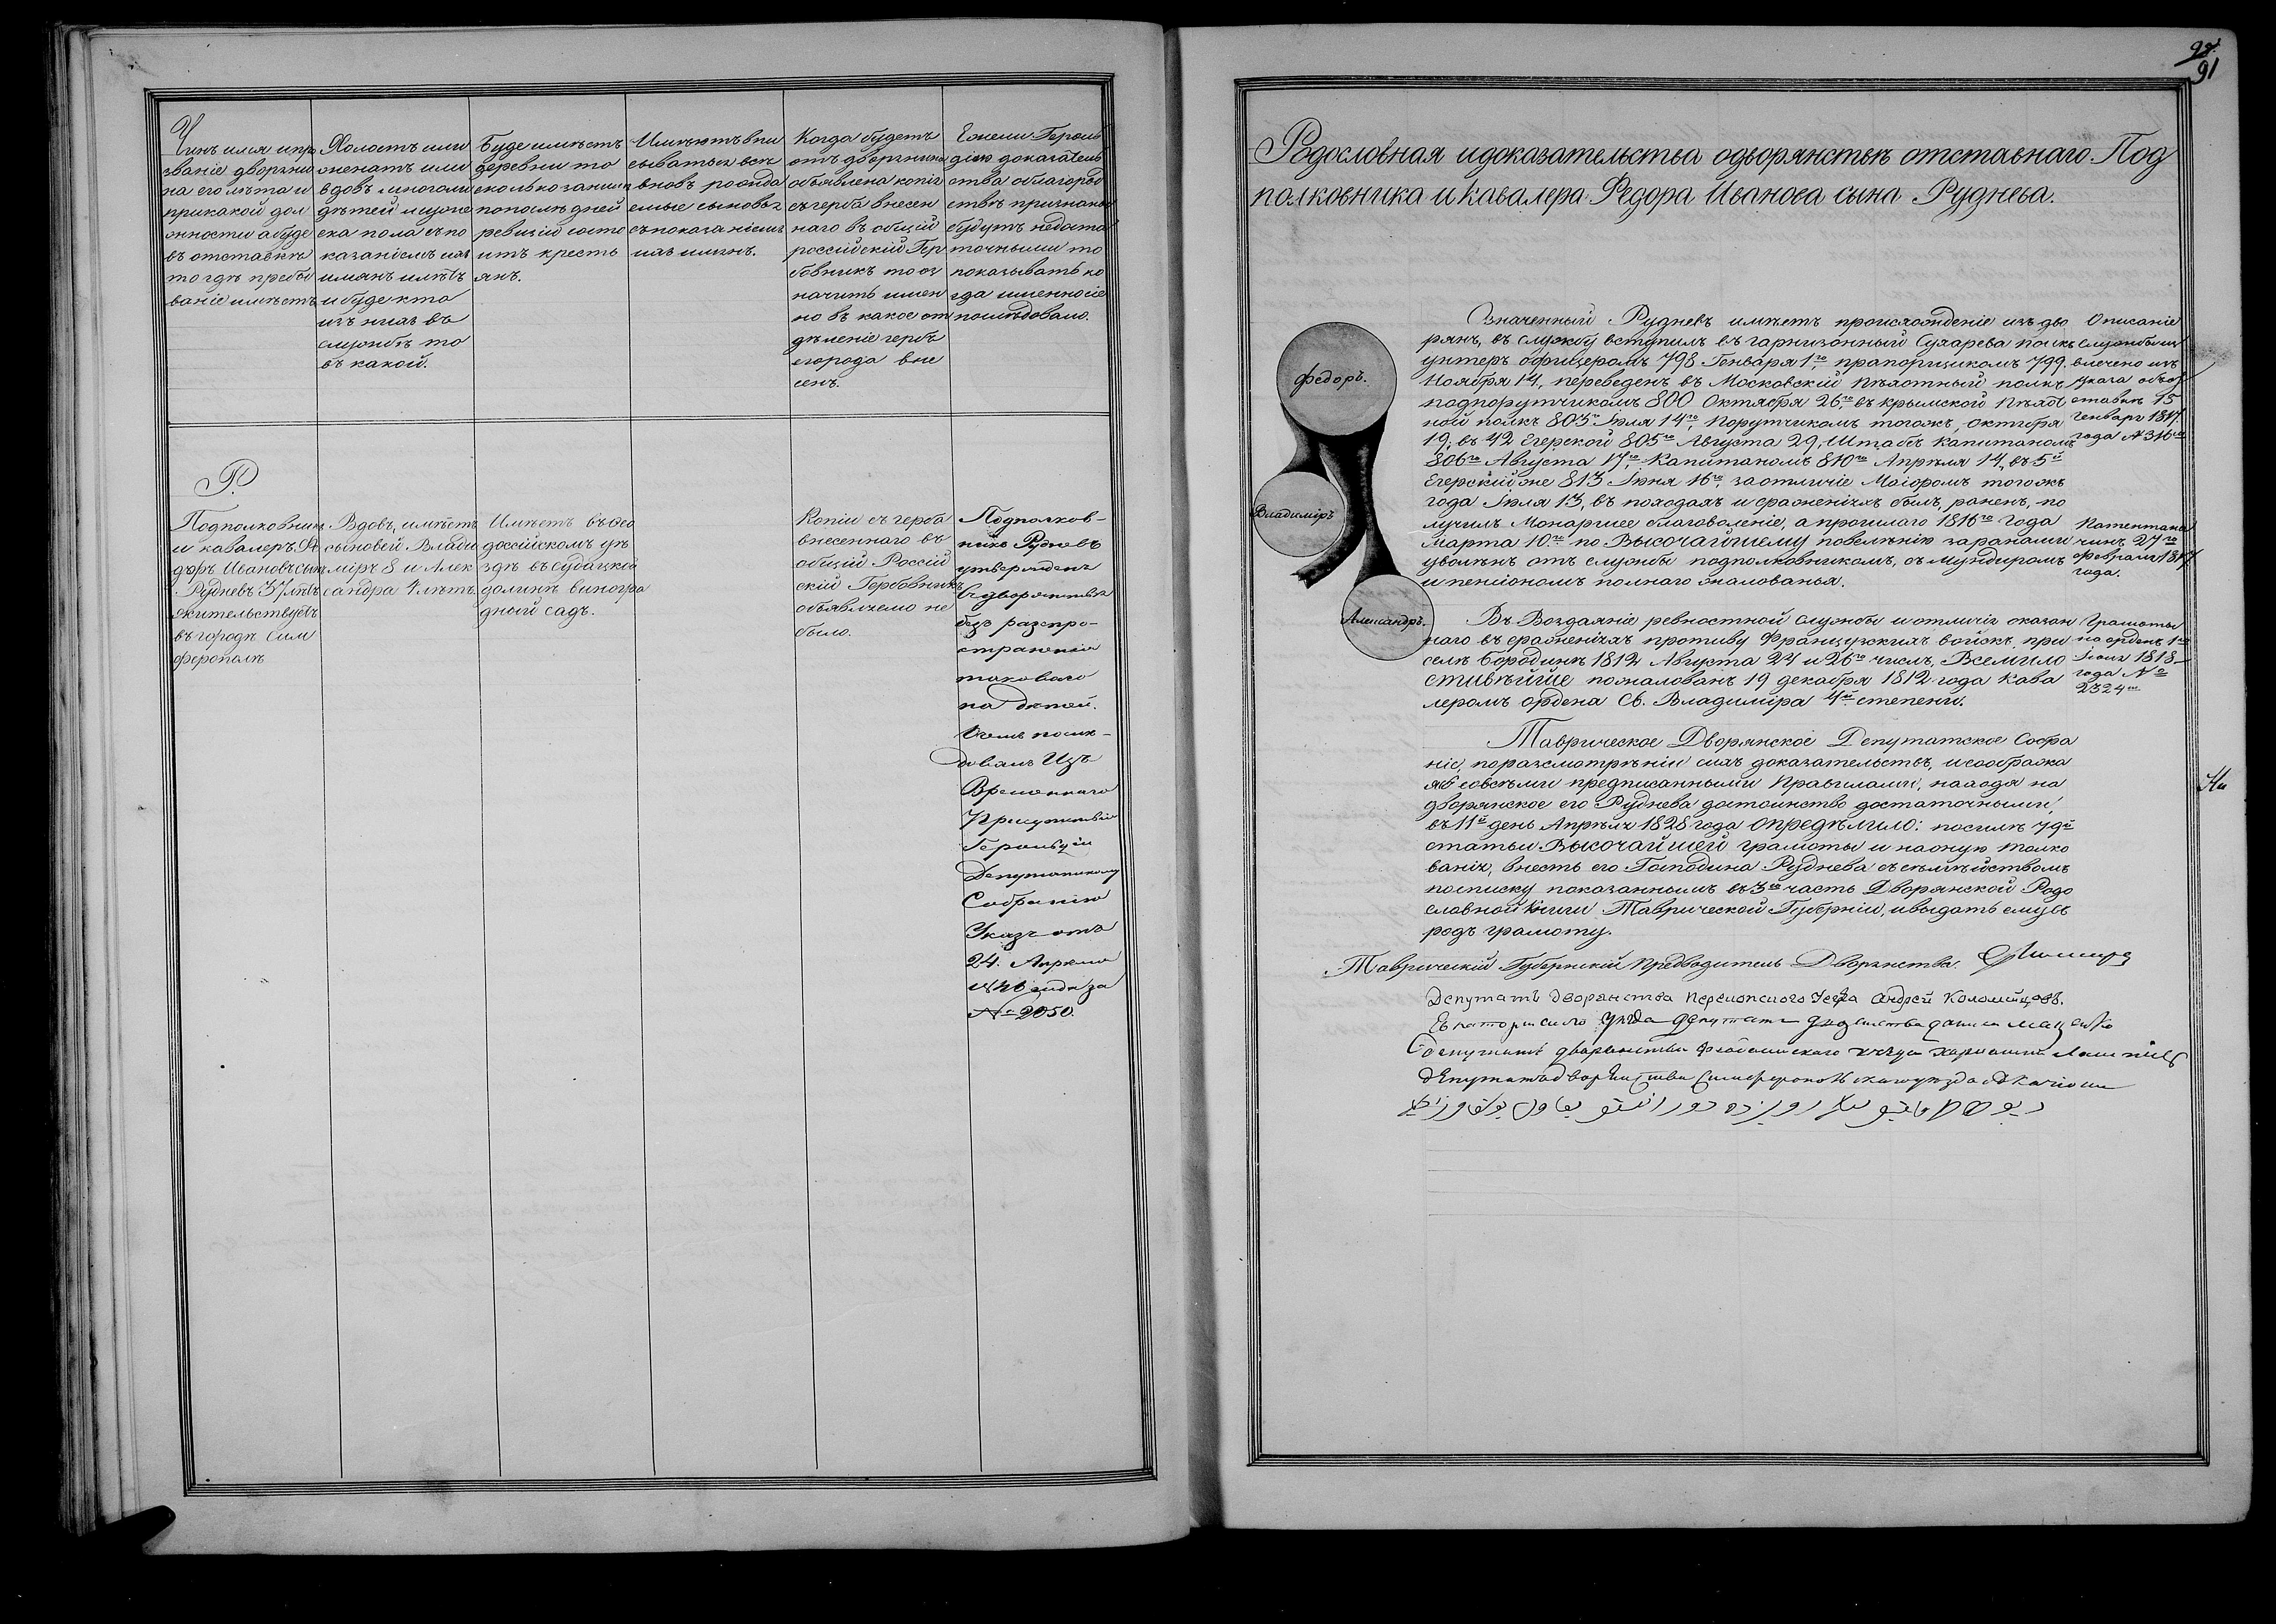 Чинъ имя и про
званіе дворяни
на его лѣта и
прикакой дол
жности а буде
въ отставкѣ
то гдѣ пребы
ваніе имѣетъ
Холостъ или
женатъ или
вдовъ
дѣтей мужс
ка пола съ по
казаніемъ ихъ
имянъ и лѣтъ
и буде кто
изъ нихъ въ
службѣ то
въ какой.
Буде имѣетъ
деревни то
сколько за ним
по послѣдней
ревизіи состо
итъ кресть
янъ.
Имѣютъ впи
сыватьсь всѣ
вновь рожда
емые сыновья
съ показаніемъ
ихъ имянъ.
Когда будетъ
отъ дворянина
объявлена копія
съ герба внесен
наго въ общій
россійскій Гер
бовникъ то оз
начить имен
но въ какое от
дѣленіе гербъ
его рода вне
сенъ.
Ежели Героль
діею доказатель
ства о благород
ствѣ признаны
будутъ недоста
точными то
показывать ко
гда именно сіе
послѣдовало.
Р.
Подполковникъ
и кавалеръ Ѳе
доръ Ивановъ сынъ
Рудневъ 37 лѣтъ
жительствуетъ
въ городѣ Сим
ферополѣ
Вдовъ, имѣетъ
сыновей Влади
міръ 8 и Алек
сандра 4 лѣтъ.
Имѣетъ въ Ѳео
досійскомъ уѣ
здѣ въ Судацкой
долинѣ виногра
дный садъ.
Копіи съ герба
внесеннаго въ
общій Россій
скій Гербовникъ
объявляемо не
было.
Подполков-
никъ Рудневъ
утвержденъ
въ дворянствѣ
безъ распро-
страненія
таковаго
на дѣтей.
О чемъ послѣ-
довалъ Изъ
Временнаго
Присутствія
Герольдіи
Депутатскому
Собранію
Указъ отъ
24. Апрѣля
года за
№ 2050.
91
Родословная и доказательства о дворянствѣ отставнаго Под
полковника и Кавалера Ѳедора Иванова сына Руднева.
Ѳедоръ.
Владиміръ
Александръ.
Означенный Рудневъ имѣетъ происхожденіе изъ дво
рянъ, въ службу вступилъ въ гарнизонный Сухарева полкъ
унтеръ офицеромъ 798 Генваря 1го, прапорщикомъ 799.
Ноября 14, переведенъ въ Московскій пѣхотный полкъ
подпорутчикомъ 800 Октября 26го, въ Крымской Пѣхот
ной полкъ 803го Іюля 14го, Порутчикомъ тогожъ, Октября
19, въ 42 Егерской 805го Августа 29, Штабсъ Капитаномъ
806го Августа 17го, Капитаномъ 810го Апрѣля 14, въ 5й
Егерскій же 813 Іюня 16го, за отличіе Маіоромъ тогожъ
года Іюля 13, въ походахъ и сраженіяхъ былъ, раненъ, по
лучилъ Монаршее благоволеніе, а прошлаго 1816го года
Марта 10го по Высочайшему повелѣнію за ранами
уволенъ отъ службы подполковникомъ, съ мундиромъ
и пенсіономъ полнаго жалованья.
Описаніе
службы из
влечено изъ
указа объ от
ставкѣ 15
Генваря 1817
года № 316
Патента на
чинъ 27го
Февраля 1817
года.
Въ Воздаяніе ревностной службы и отличія оказан
наго въ сраженіяхъ противу Французскихъ войскъ, при
селѣ Бородинѣ 1812 Августа 24 и 26го числъ, Всемило
стивѣйше пожалованъ 19 декабря 1812 года Кава
леромъ ордена Св. Владиміра 4й степени.
Грамоты
на орденъ 1го
1818
года №
2324
Таврическое Дворянское Депутатское Собра
ніе, по разсмотрѣніи сихъ доказательствъ, и сообража
я съ предписанными Правилами, находя на
дворянское его Руднева достоинство достаточными,
въ 11й день Апрѣля 1828 года опредѣлило: по силѣ 79й
статьи Высочайшей грамоты и на оную толко
ванія, внесть его Господина Руднева съ семѣйствомъ
по списку показаннымъ въ 3ю часть Дворянской Родо
словной Книги Таврической Губерніи, и выдать ему въ
родъ грамоту.
Таврическій Губернскій Предводитель Дворянства
Депутатъ Дворянства Перекопского Уезда Андрей Коломійцовъ.
уѣзда депутатъ
депутатъ дворянства
депутатъ дворянства Симферопольскаго уѣзда